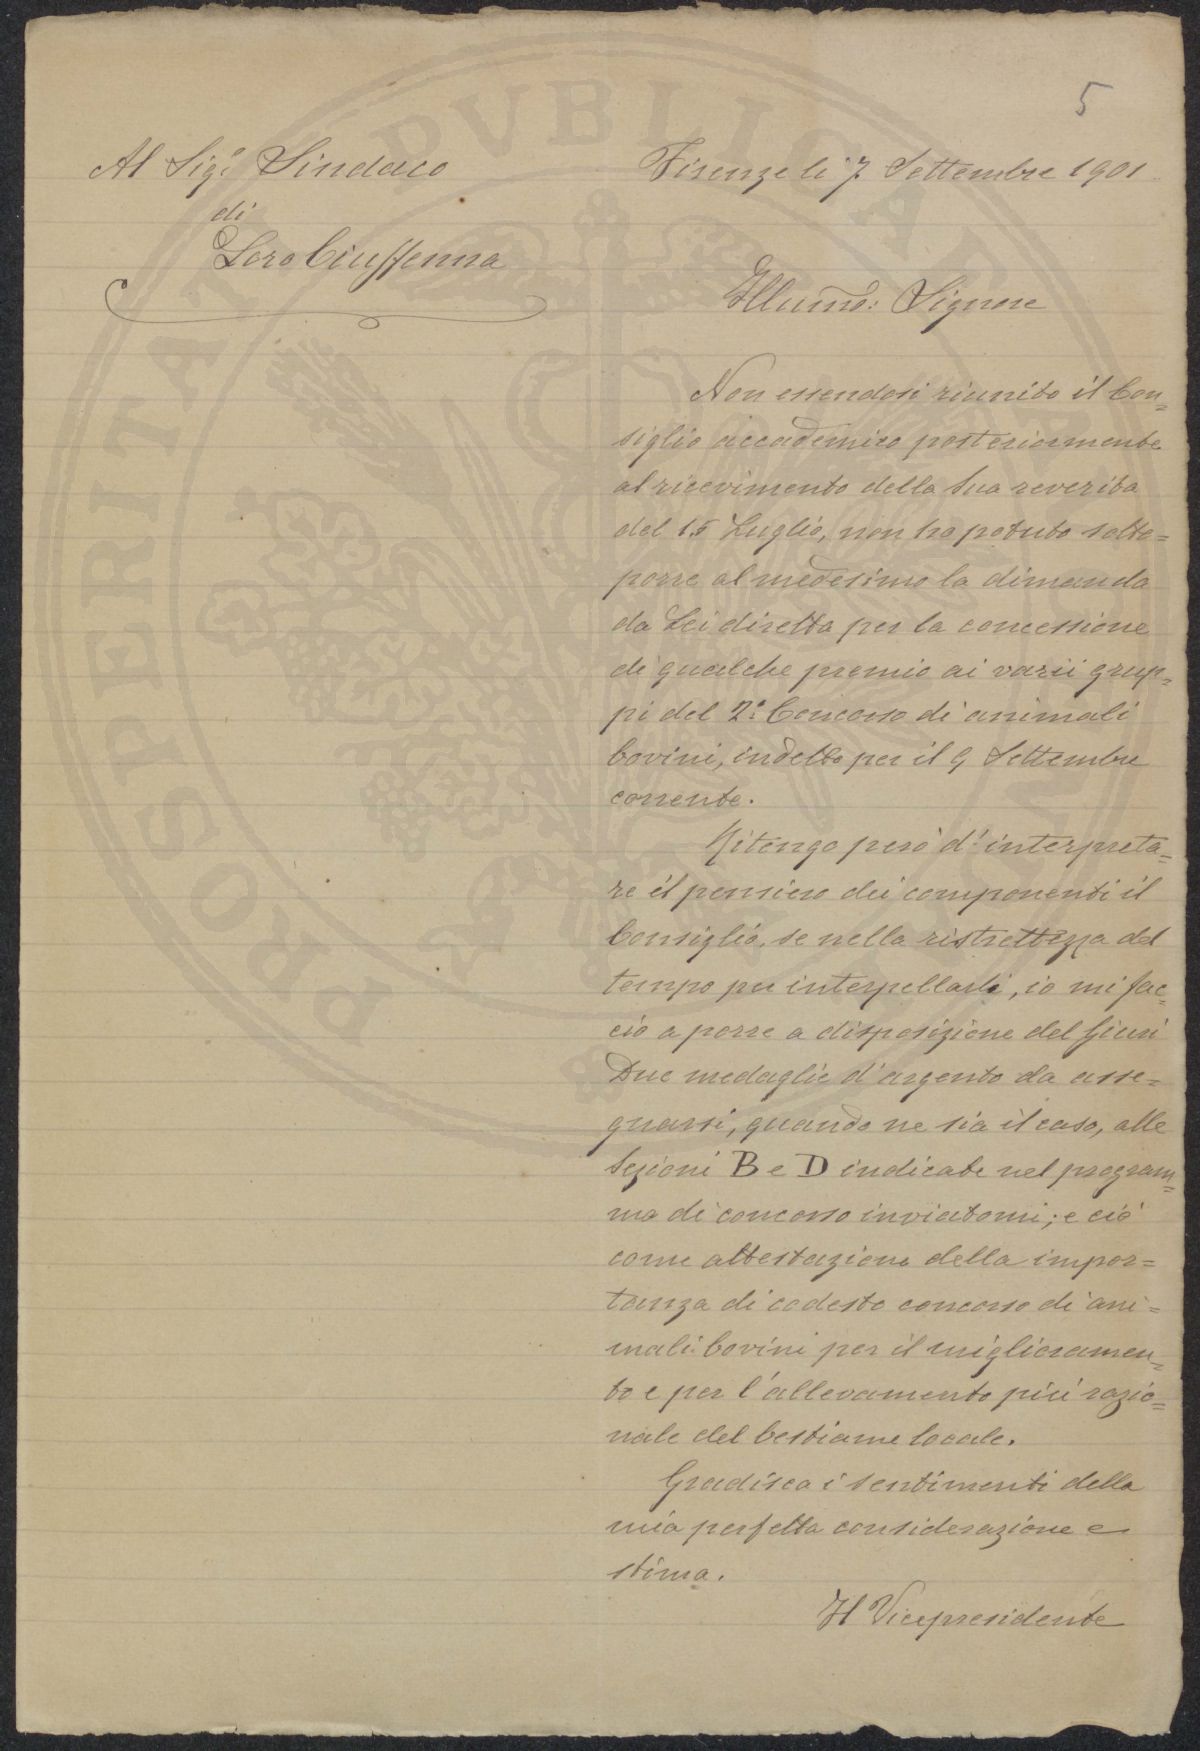 5
Al Sigʳ Sindaco
di
Loro Ciuffenna
Firenze li 7 Settembre 1901
Illumo: Signore
Non essendosi riunito il Con=
siglio accademico posteriormente
al ricevimento della Sua reverita
del 15 Luglio, non ho potuto sotto=
porre al medesimo la dimanda
da Lei diretta per la concessione
di qualche premio ai varii grup=
pi del 2º Concorso di animali
bovini, indetto per il 9 Settembre
corrente.
Ritengo però d'interpreta=
re il pensiero dei componenti il
Consiglio, se nella ristrettezza del
tempo per interpellarli, io mi fac=
cio a porre a disposizione del Giurì
Due medaglie d'argento da asse=
gnarsi, quando ne sia il caso, alle
Sezioni B e D indicate nel program=
ma di concorso inviatomi; e ciò
come attestazione della impor=
tanza di codesto concorso di ani=
mali bovini per il miglioramen=
to e per l'allevamento più razio=
nale del bestiame locale.
Gradisca i sentimenti della
mia perfetta considerazione e
stima.
Il Vicepresidente
PROSPERITATI PUBLICAE